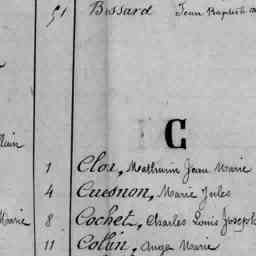 51 Bessard Jean Baptiste
C
1 Clos, Mathurin Jean Marie
4 Cuesnon, Marie Jules
Marie
8 Cochet, Charles Louis Joseph
11 Colin, Ange Marie